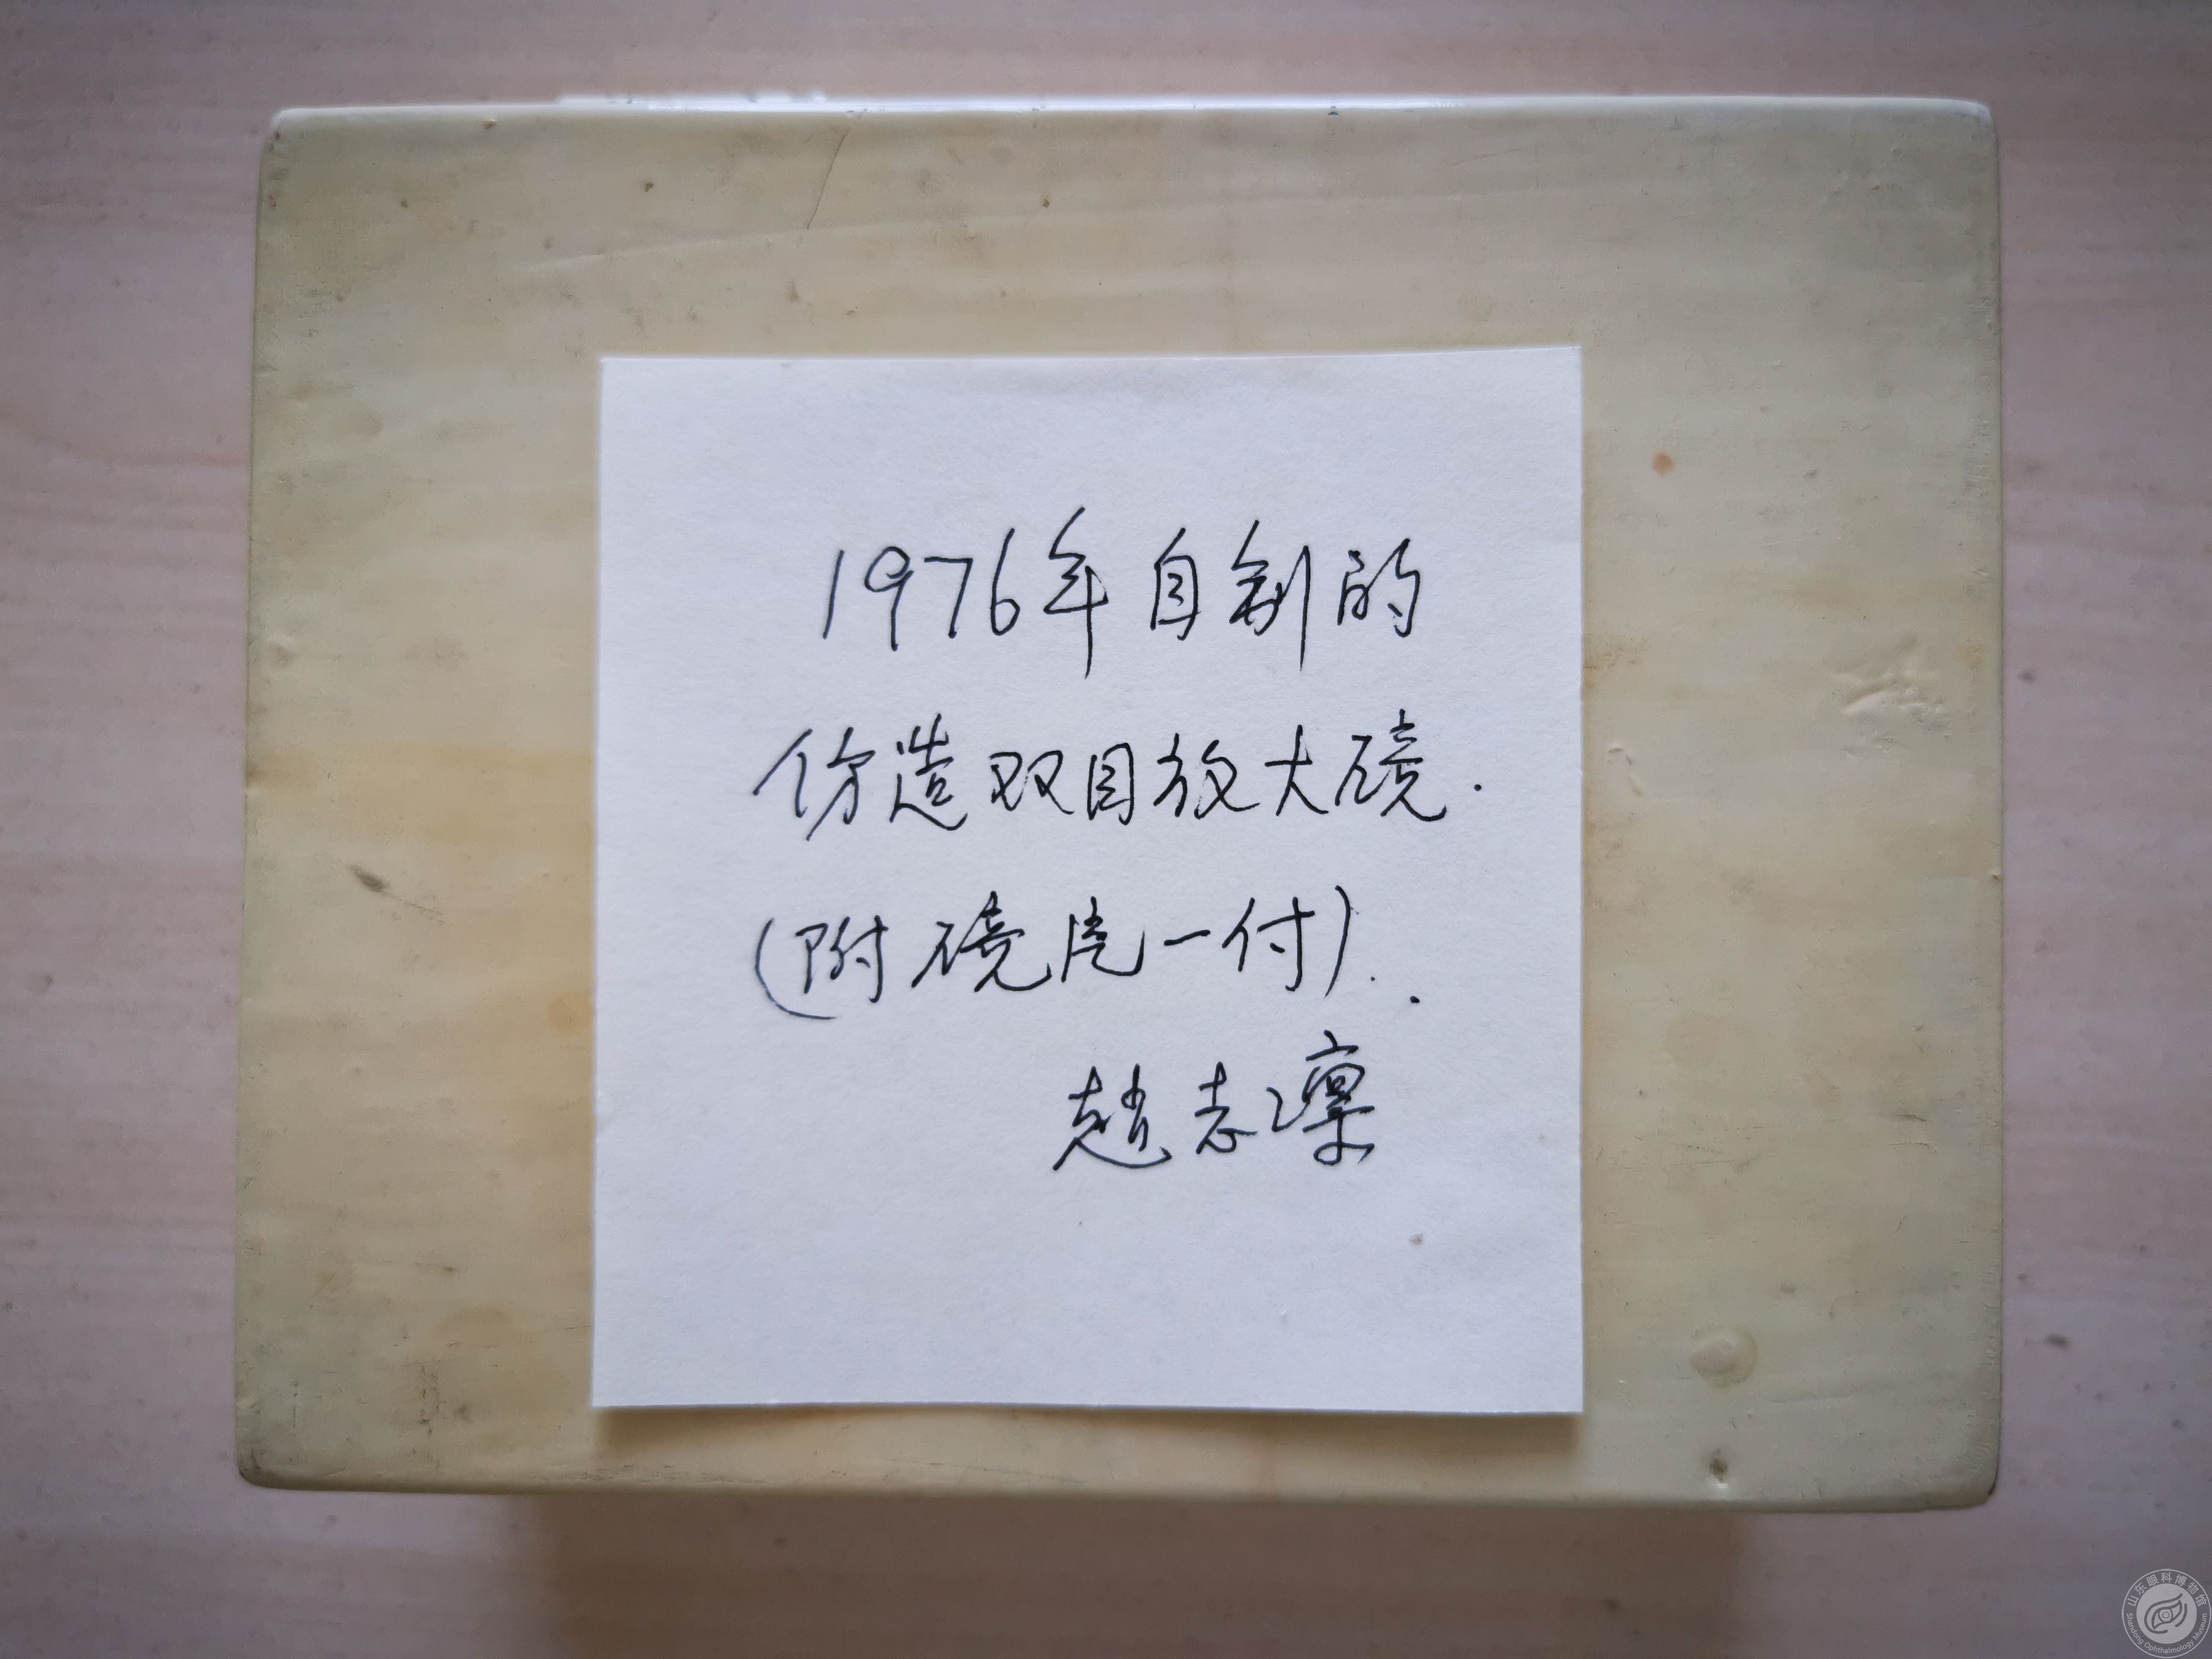 1976年自制的
仿造双目放大镜.
(附镜片一付).
赵志凛
山东眼科博物馆
Shandong Ophthalmology Museum